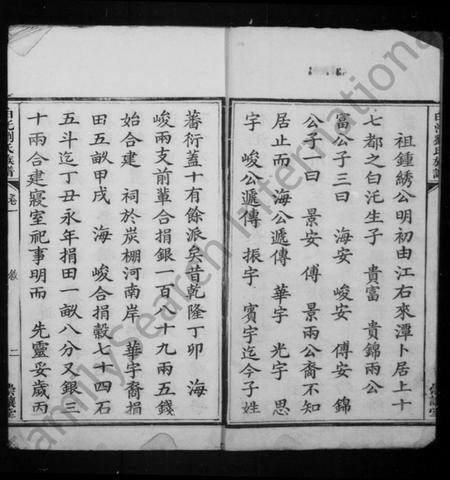 祖鍾綉公明初由江右來潭卜居上十
七都之白沱生子 貴富 貴錦兩公
富公子三曰 海安 峻安 傅安 錦
公子一曰 景安 傅 景兩公裔不知
居止而 海公遞傳 華字 光字 思
字 峻公遞傳 振字 賓字迄今子姓
蕃衍蓋十有餘派矣昔乾隆丁卯 海
峻兩支前輩合捐銀一百八十九兩五錢
始合建 祠於炭棚河南岸 華字裔捐
田五畝甲戌 海 峻合捐穀七十四石
五斗迄丁丑永年捐田一畝八分又銀三
十兩合建寢室祀事明而 先靈妥歲丙
白沱劉氏族譜 卷一 二
FamilySearch International